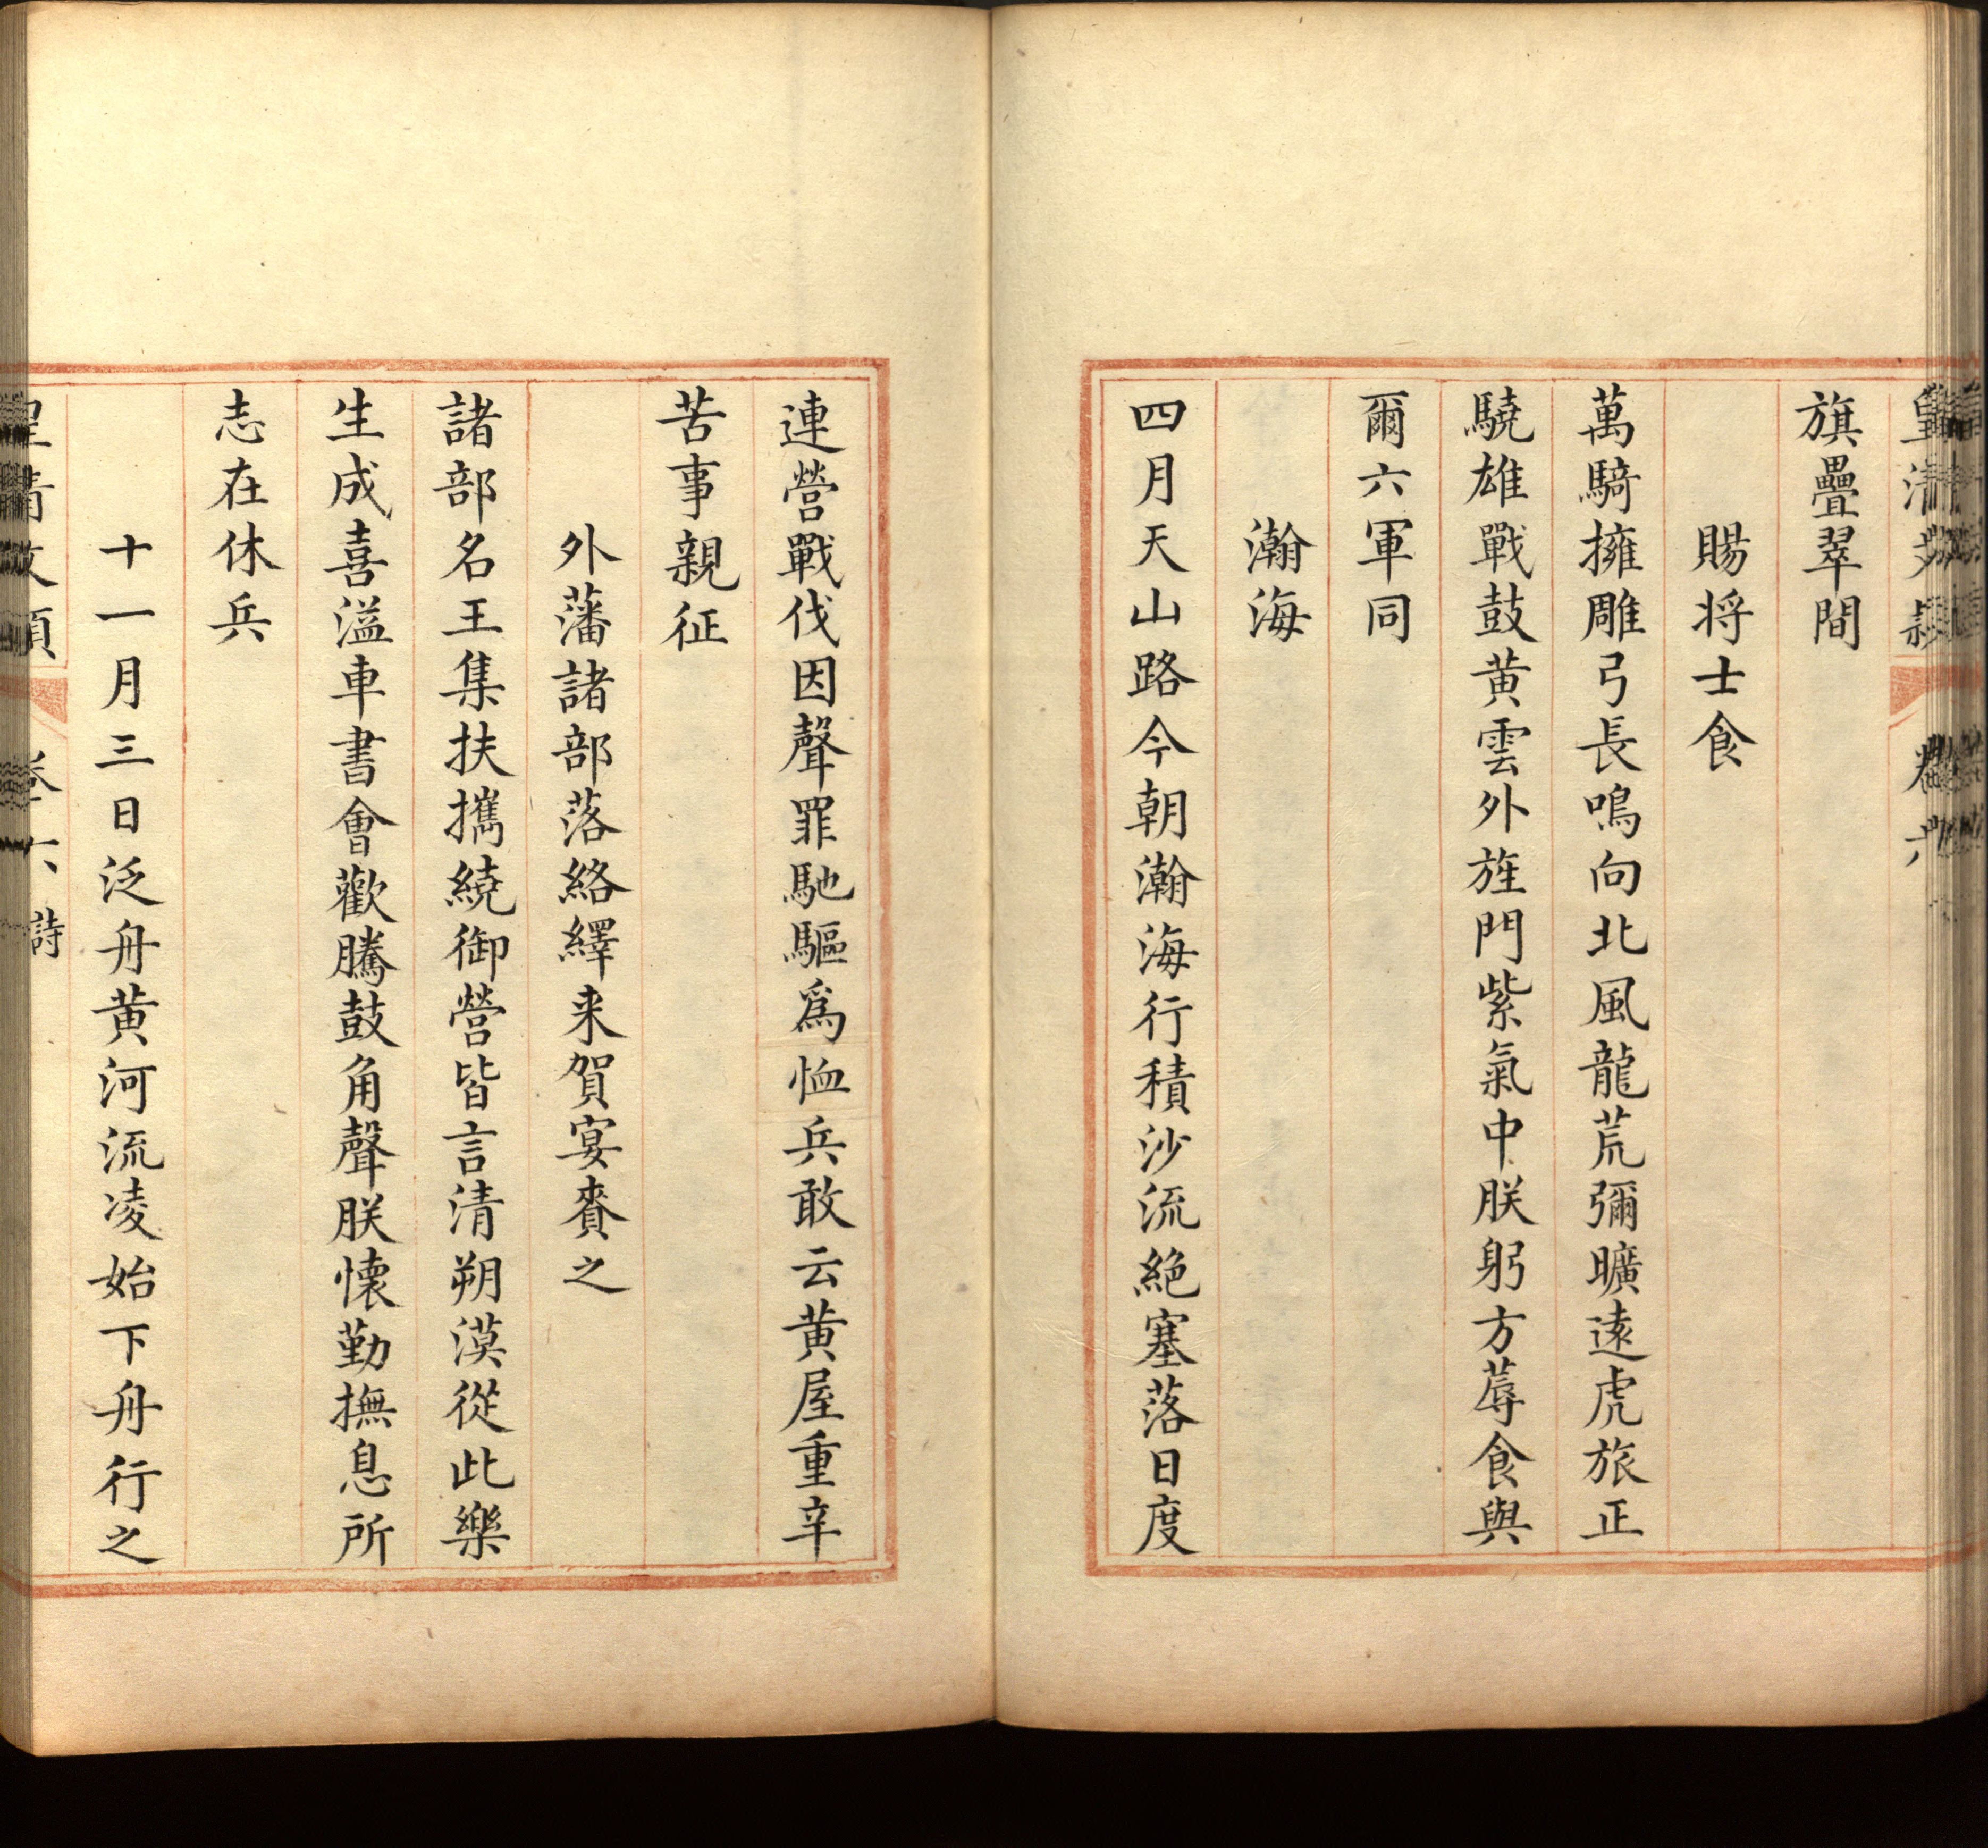 皇清文穎 卷六
旗疊翠間
賜將士食
萬騎擁雕弓長鳴向北風龍荒彌曠遠虎旅正
驍雄戰鼓黃雲外旌門紫氣中朕躬方蓐食與
爾六軍同
瀚海
四月天山路今朝瀚海行積沙流絕塞落日度
連營戰伐因聲罪馳驅爲恤兵敢云黃屋重辛
苦事親征
外藩諸部落絡繹来賀宴賚之
諸部名王集扶攜繞御營皆言清朔漠從此樂
生成喜溢車書會歡騰鼓角聲朕懷勤撫息所
志在休兵
十一月三日泛舟黃河流凌始下舟行之
皇清文穎 卷六 詩